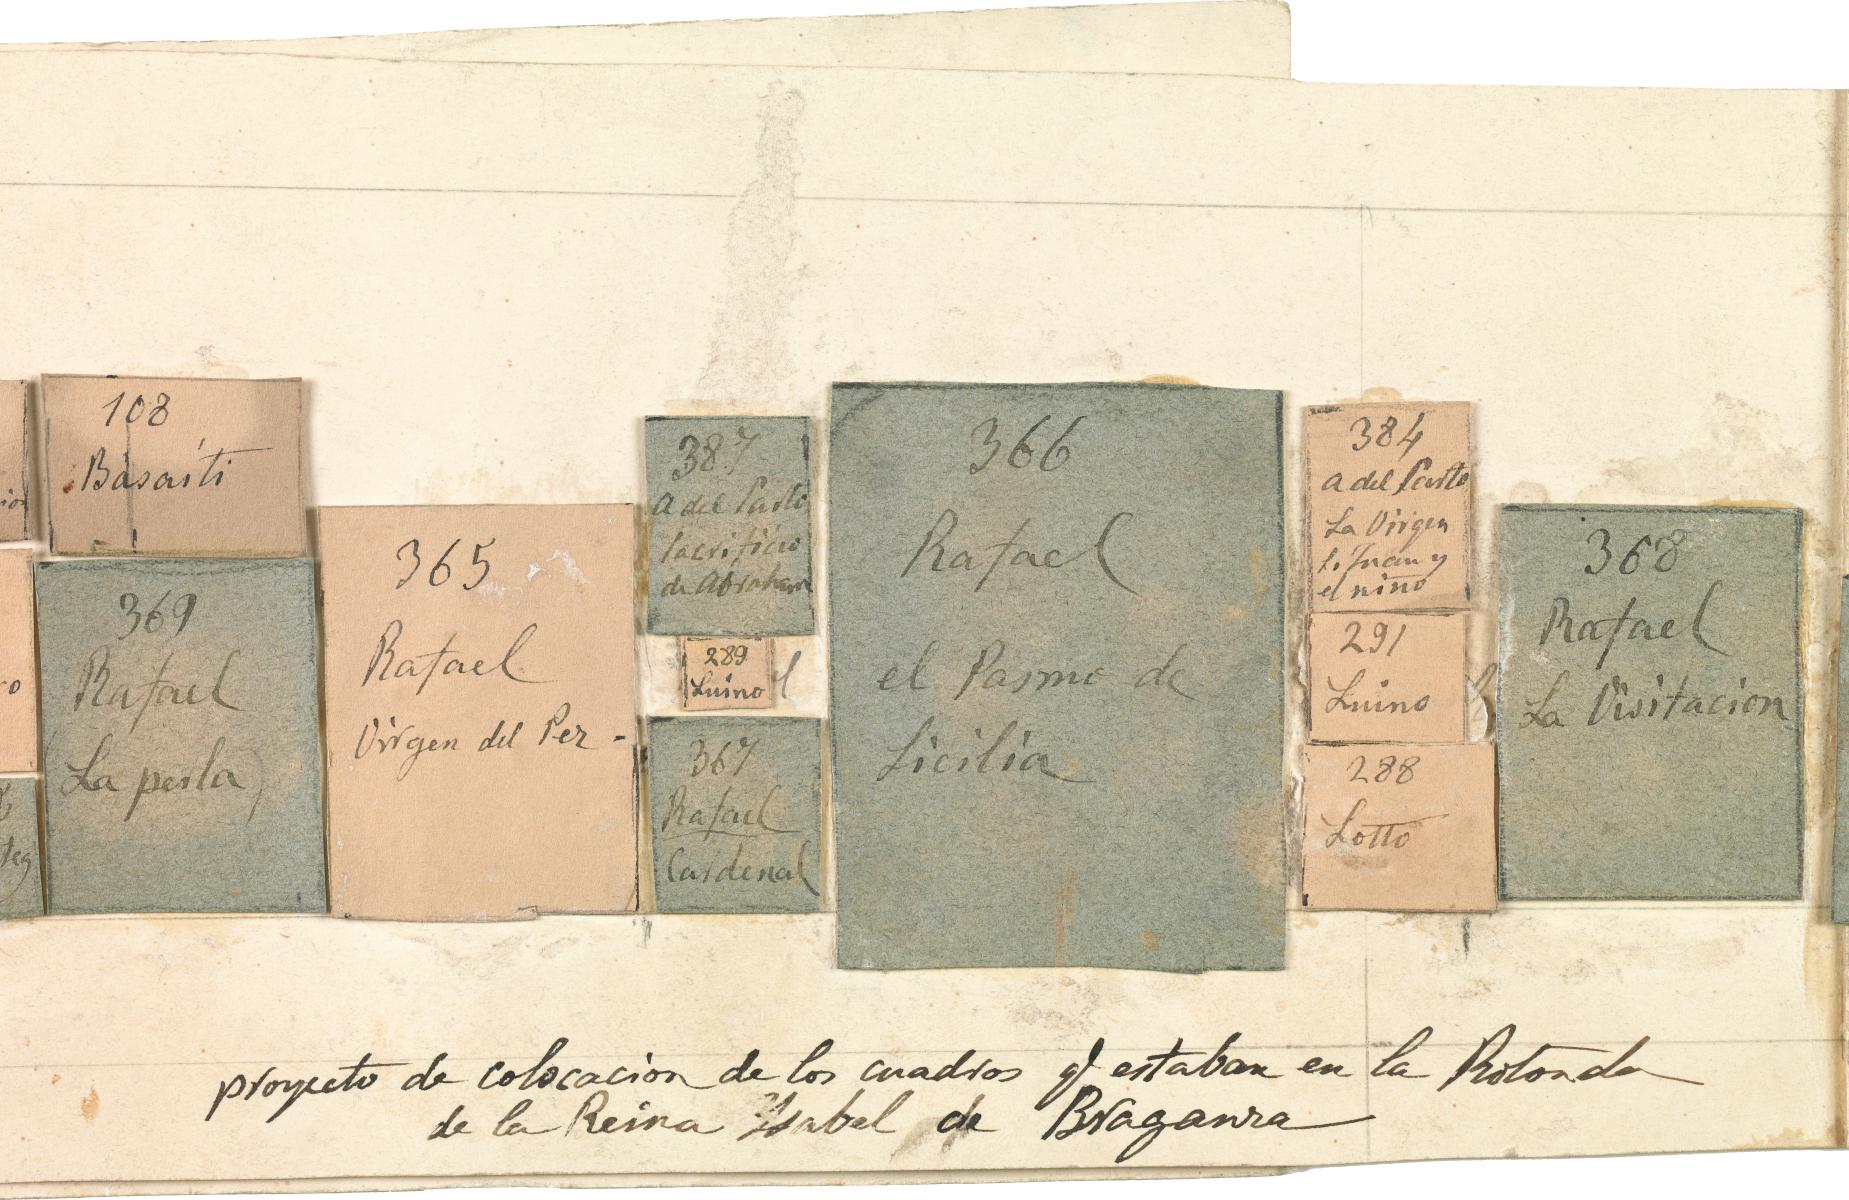 108
Basaiti
369
Rafael
La perla
365
Rafael
Virgen del Pez -
387
A del Sarto
Sacrificio
de Abraham
289
Luino
367
Rafael
Cardenal
366
Rafael
el Pasmo de
Sicilia
384
A del Sarto
La Virgen
S. Juan y
el niño
291
Luino
288
Lotto
368
Rafael
La Visitacion
proyecto de colocacion de los cuadros q̃ estaban en la Rotonda
de la Reina Ysabel de Braganza